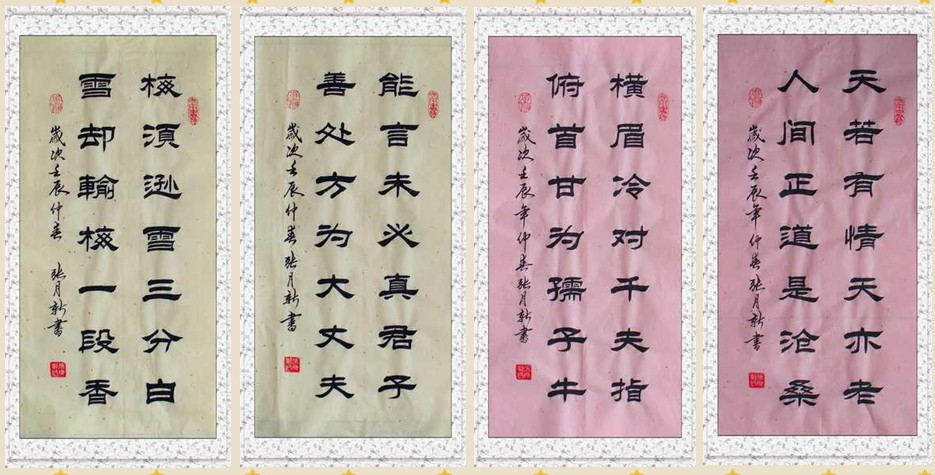 梅須逊雪三分白
雪却輸梅一段香
歲次壬辰仲春 张月新書
能言未必真君子
善处方为大丈夫
歲次壬辰仲春张月新書
横眉冷对千夫指
俯首甘为孺子牛
歲次壬辰年仲春张月新書
天若有情天亦老
人间正道是沧桑
歲次壬辰年仲春张月新書